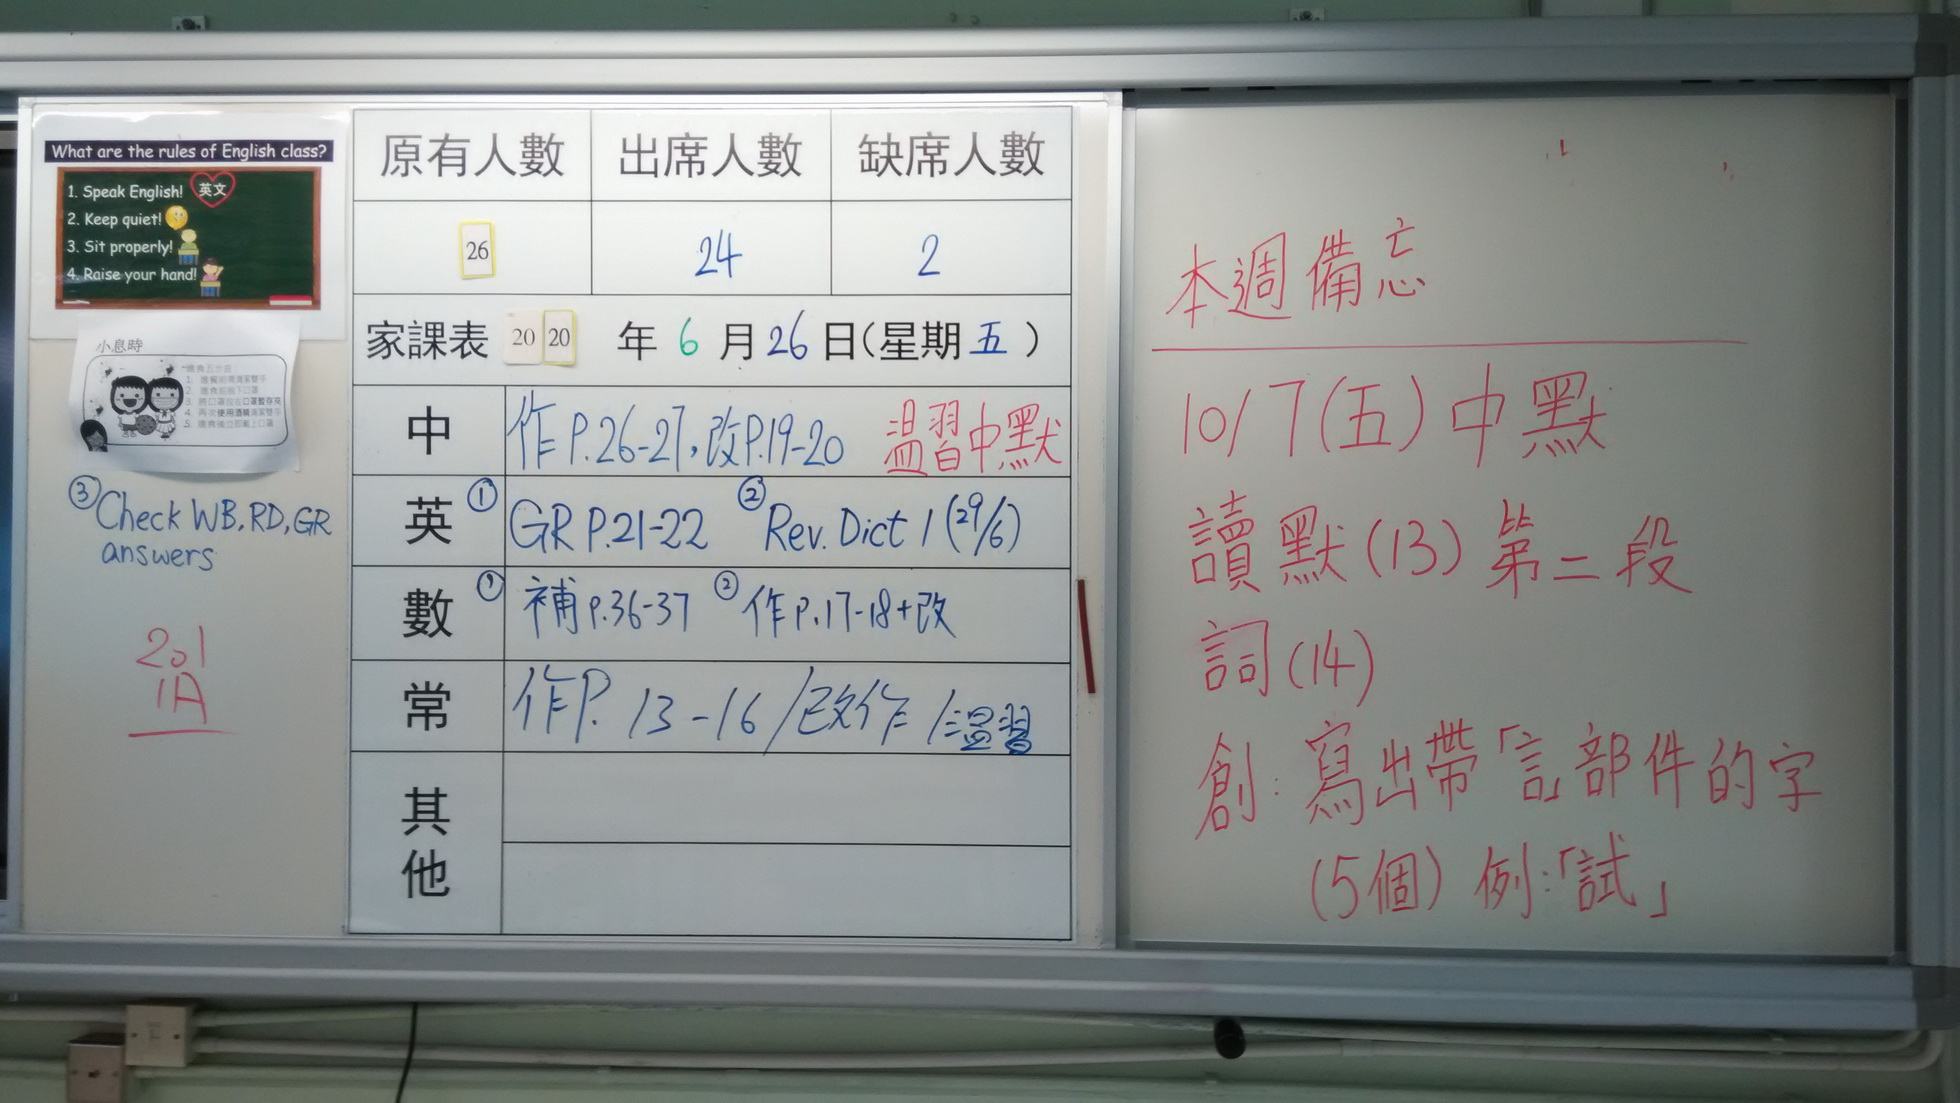 What are the rules of English class?
1. Speak English! 英文
2. Keep quiet!
3. Sit properly!
4. Raise your hand!
小息時
③ Check WB, RD, GR
answers
201
1A
原有人數 出席人數 缺席人數
26 24 2
家課表 20 20 年 6 月 26 日(星期 五 )
中 作 P.26-27, 改P.19-20 溫習中默
英 ① GR P.21-22 ② Rev. Dict 1 (29/6)
數 ① 補 P.36-37 ② 作 P.17-18+改
常 作P. 13-16 / 改作 / 溫習
其他
本週備忘
10/7(五) 中默
讀默(13) 第二段
詞(14)
創: 寫出帶「言」部件的字
(5個) 例:「試」